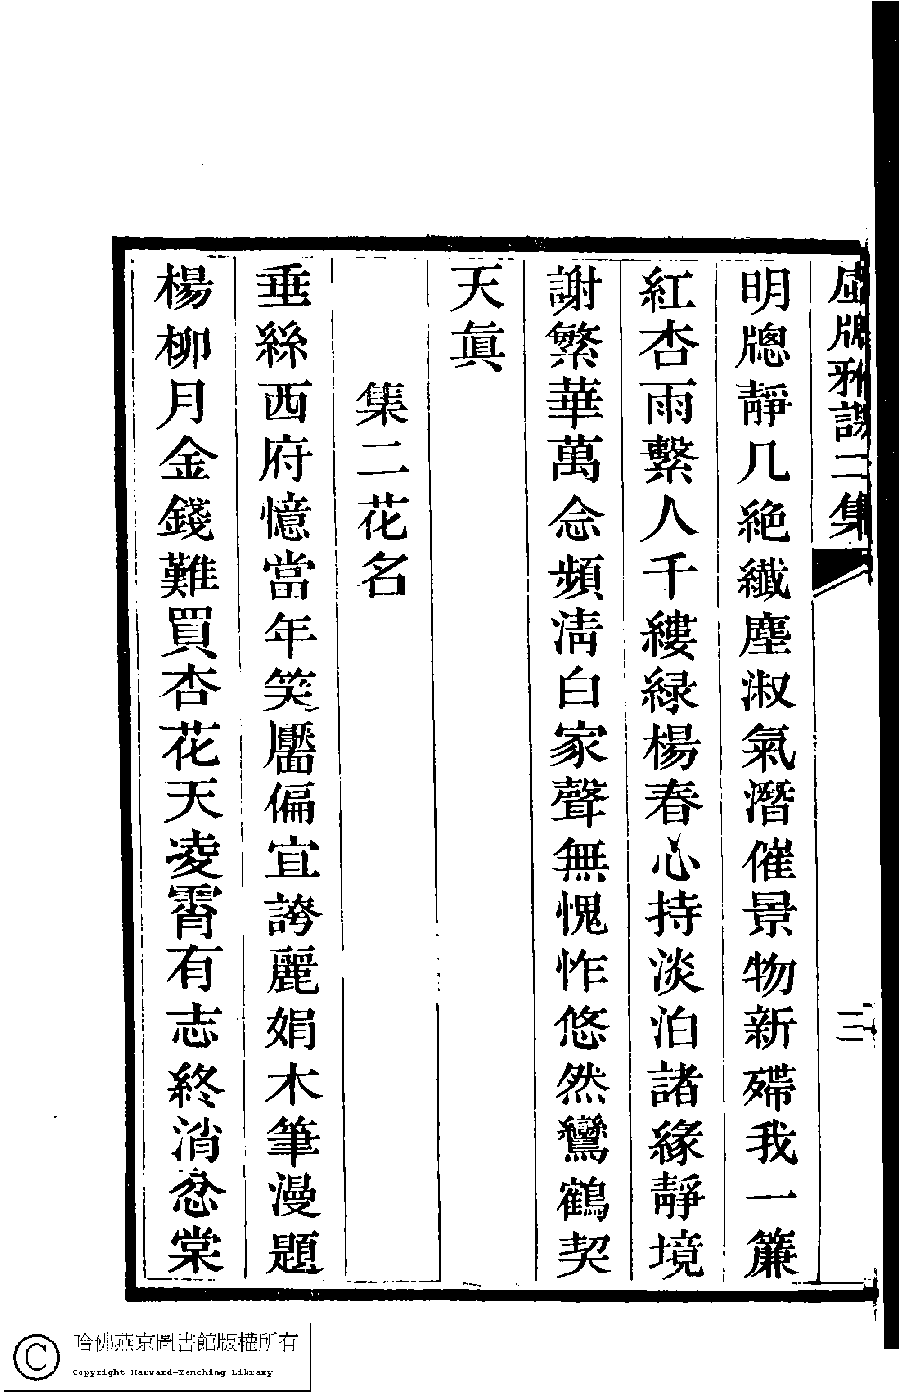 虛牕雅課二集
三
明牕靜几絶纖塵淑氣潛催景物新殢我一簾
紅杏雨繫人千縷緑楊春心持淡泊諸緣靜境
謝繁華萬念頻淸白家聲無愧怍悠然鸞鶴契
天眞
集二花名
垂絲西府憶當年笑靨偏宜誇麗娟木筆漫題
楊柳月金錢難買杏花天凌霄有志終消忿棠
哈佛燕京圖書館版權所有
Copyright Harvard-Yenching Library